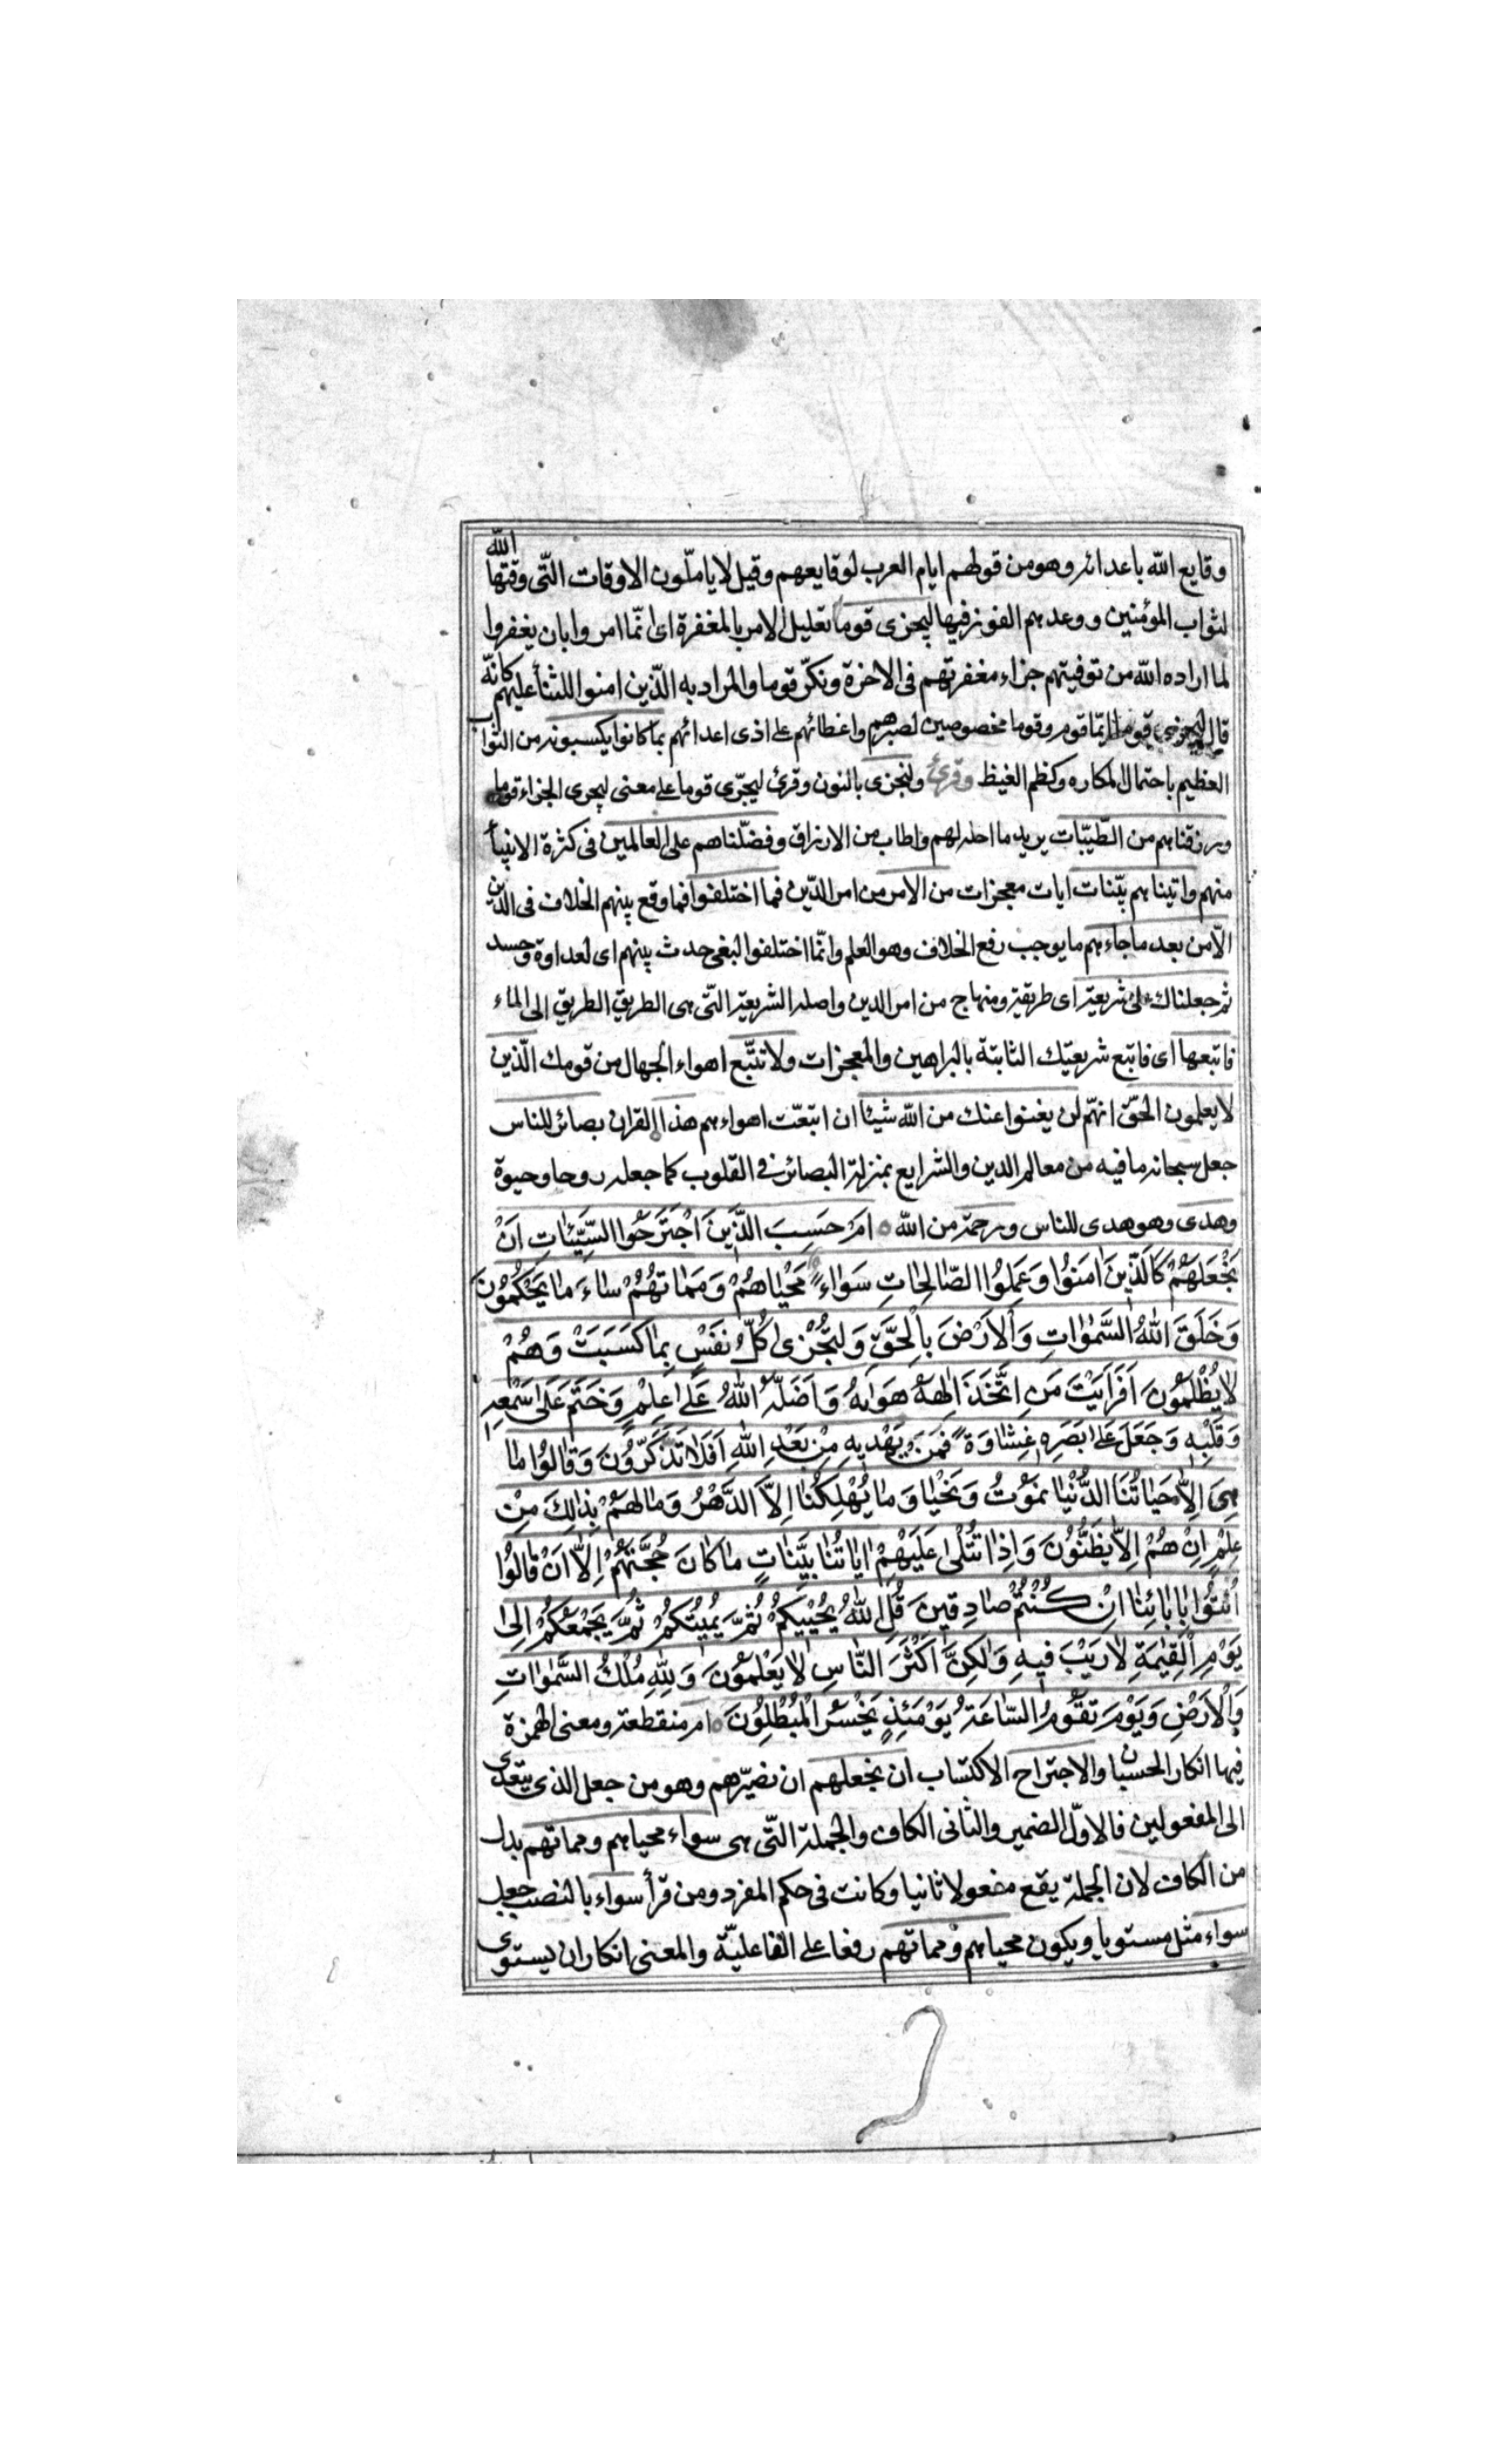 وقايع الله باعدائه وهو من قولهم ايام العرب لوقايعهم وقيل لا ياملّون الاوقات التّى وقتها الله
لثواب المؤمنين ووعدهم الفوز فيها ليجزى قوما تعليل الامر بالمغفرة اى انّما امروا بان يغفروا
لما اراده الله من توفيتهم جزاء مغفرتهم فى الاخرة ونكّر قوما والمراد به الّذين امنوا للثنأ عليهم كانّه
قال ليجزى قوما ايّما قوم وقوما مخصوصين لصبرهم واغطائهم على اذى اعدائهم بما كانوا يكسبونه من الثواب
العظيم باحتمال المكاره وكظم الغيظ وقرئ ولنجزى بالنون وقرئ ليجزى قوما على معنى ليجرى الجزاء قوما
ورزقناهم من الطّيّبات يريد ما احله لهم واطاب من الارزاق وفضّلناهم على العالمين فى كثرة الانبيأ
منهم واتيناهم بيّنات ايات معجزات من الامر من امر الدّين فما اختلفوا فما وقع بينهم الخلاف فى الدين
الّا من بعد ما جاءهم ما يوجب رفع الخلاف وهو العلم وانّما اختلفوا لبغى حدث بينهم اى لعداوة وحسد
ثم جعلناك على شريعة اى طريقة ومنهاج من امر الدين واصله الشريعة التّى هى الطريق الطريق الى الماء
فاتبعها اى فاتبع شريعتك الثابتة بالبراهين والمعجزات ولا تتّبع اهواء الجهال من قومك الّذين
لا يعلمون الحقّ انهّم لن يغنوا عنك من الله شيئا ان اتبعّت اهواءهم هذا القران بصائر للناس
جعل سبحانه ما فيه من معالم الدين والشرايع بمنزلة البصائر فى القلوب كما جعله روحا وحيوة
وهدى وهو هدى للناس ورحمة من الله ○ ام حَسِبَ الَّذَينَ اجْتَرَحُوا السَّيِّئاتِ اَنْ
نَجْعَلَهُمْ كَالَّذينَ امَنوُا وَعَمِلوُا الصّالِحاتِ سَواءً مَحْياهُمْ وَمَماتهُمُ ساءَ ما يَحْكُمُونَ
وَخَلَقَ اللهُ السَّمواتِ وَاْلاَرْضَ باِلْحَقِّ وَلِتجُزْى كُلُّ نفَسٍْ بِما كَسَبَتْ وَهُمْ
لا يُظْلَموُنَ اَفَرَايْتَ مَنِ اتَّخَذَ اِلهَهُ هَواهُ وَاَضَلَّهُ اللهُ عَلى عِلْمٍ وَخَتَمَ عَلى سَمْعِهِ
وَقَلْبِهِ وَجَعَلَ عَلى بَصَرِهِ غِشاوَةً فَمَنْ يَهْديهِ مِنْ بَعْدِ اللهِ اَفَلا تَذَكَّروُنَ وَقالوُا ما
هِىَ اِلاّ حَياتُنَا الدُّنْيا نموُتُ وَنَحْيا وَما يُهْلِكُنا اِلاَّ الدَّهْرُ وَما لهَمُ بِذلِكَ مِنْ
عِلْمٍ اِنْ هُمْ اِلاّ يظَنُّونَ وَاِذا تُتْلى عَلَيْهِمْ اياتُنا بَيِّناتٍ ما كانَ حُجَّتَهُمْ اِلاّ اَنْ قالوُا
ائْتوُا بِابائِنا اِنْ كُنْتُمْ صادِقينَ قُلِ اللهُ يُحْييكُمْ ثُمَّ يُميتُكمُ ثُمَّ يَجْمَعُكمُ اِلى
يَوْمِ الْقِيمَةِ لا رَيْبَ فيهِ وَلكِنَّ اَكْثَرَ النّاسِ لا يَعْلَموُنَ وَلِلّهِ مُلْكُ السَّمواتِ
وَاْلاَرْضِ وَيَوْمَ تقَوُمُ السّاعَةُ يَوْمَئِذٍ يَخْسَرُ الْمُبْطِلُونَ ○ ام منقطعة ومعنى الهمزة
فيها انكار الحسبان والاجتراح الاكتساب ان نجعلهم ان نصيّرهم وهو من جعل الذى يتعدى
الى المفعولين فالاوّل الضمير والثانى الكاف والجملة التّى هى سواء محياهم ومماتهم بدل
من الكاف لان الجملة يقع مفعولا ثانيا وكانت فى حكم المفرد ومن قرأ سواء بالنصب جعل
سواء مثل مستويا ويكون محياهم ومماتهم رفعا على الفاعليّة والمعنى انكار ان يستوى